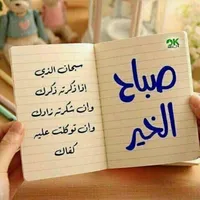 صباح
الخير
سبحان الذي
إذا ذكرته ذكرك
وان شكرته زادك
وان توكلت عليه
كفاك
2K